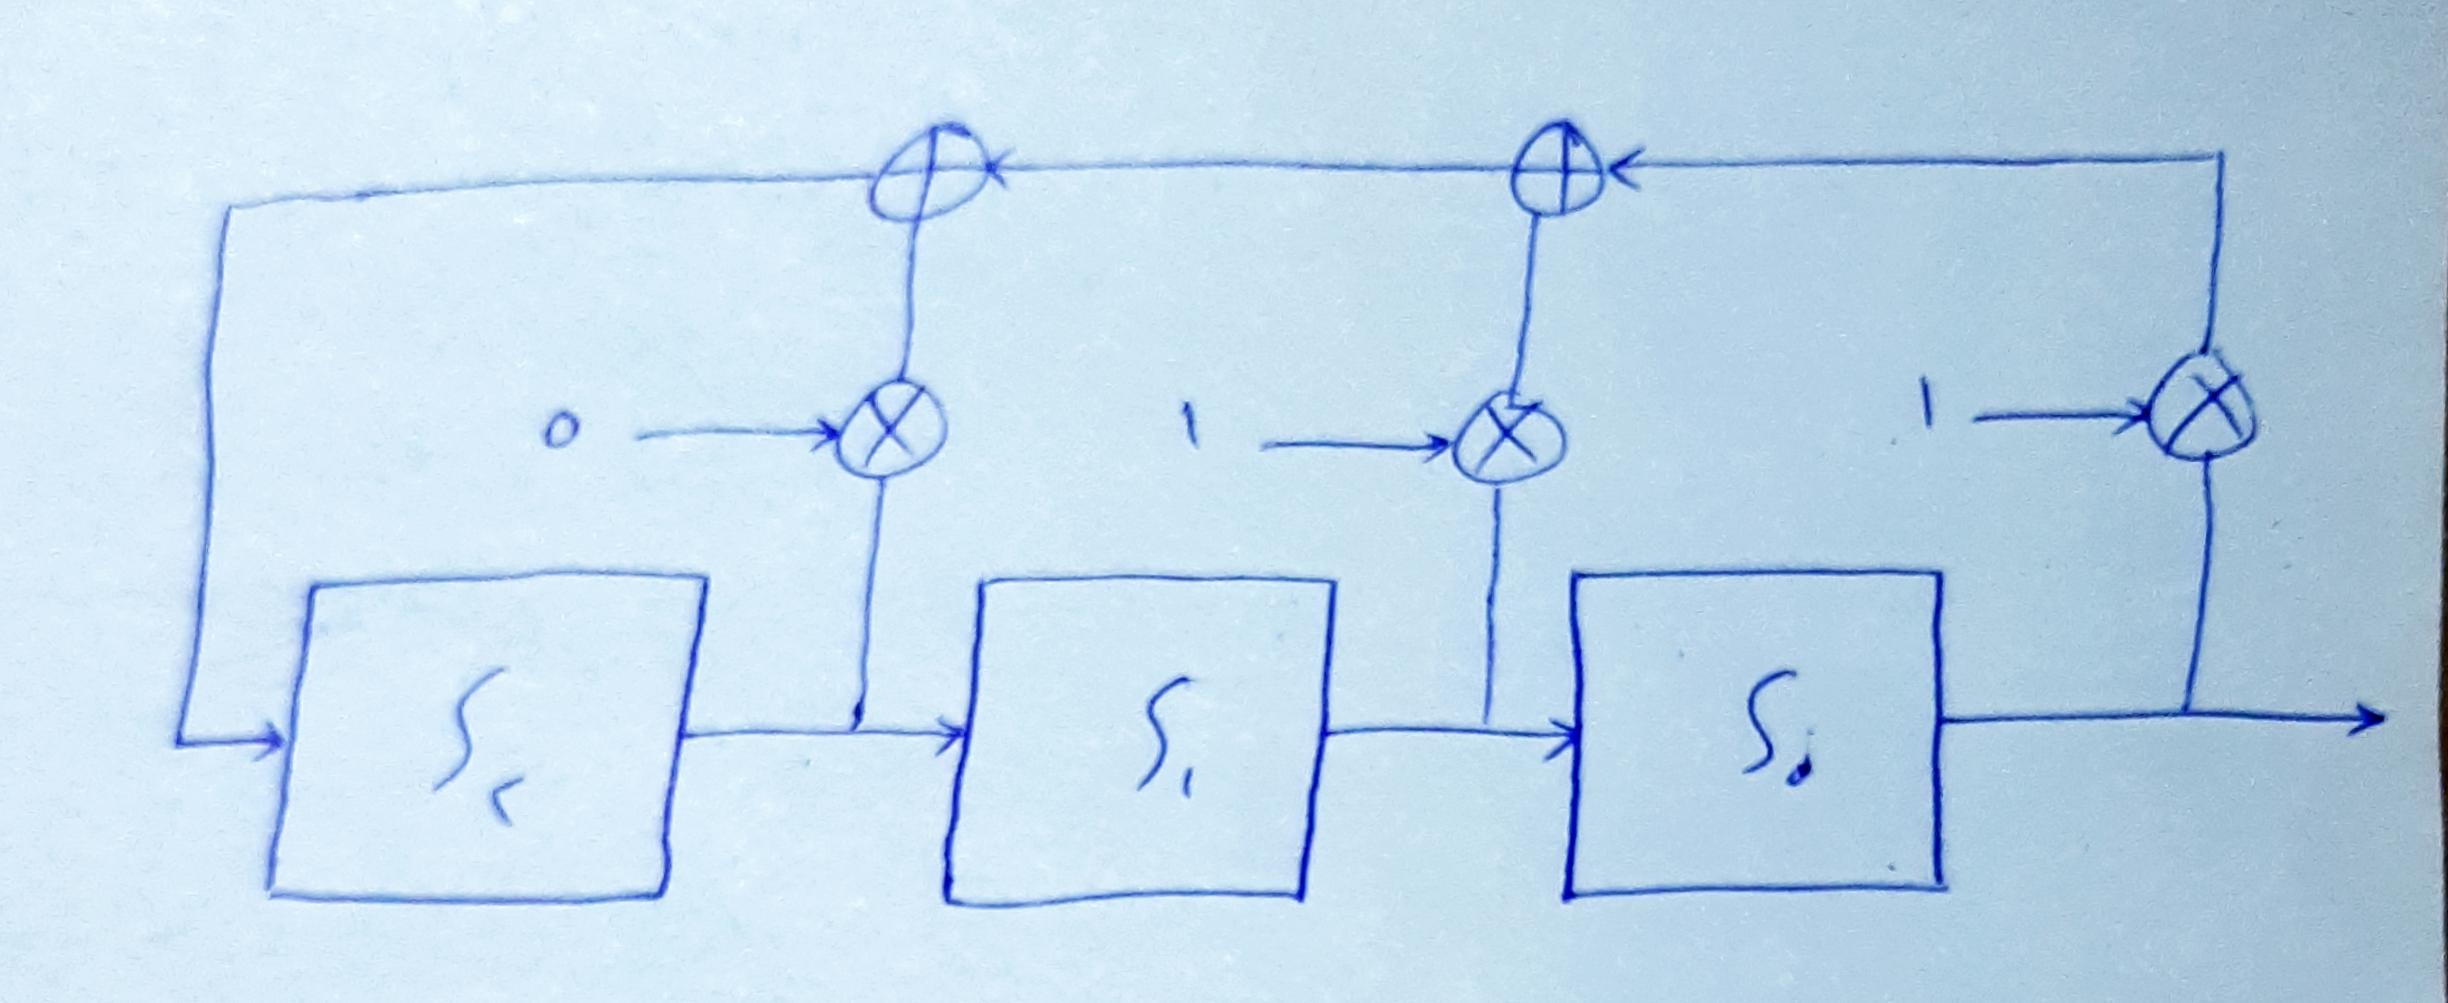 0 1 1
S S₁ S₀